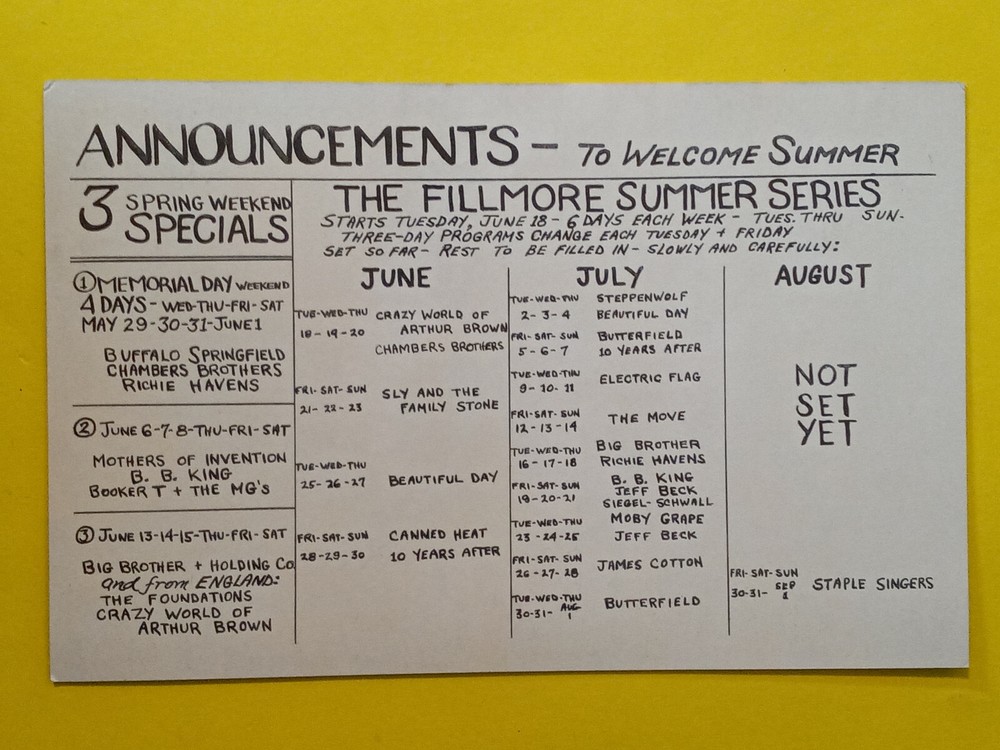 ANNOUNCEMENTS - TO WELCOME SUMMER
3 SPRING WEEKEND
SPECIALS
① MEMORIAL DAY WEEKEND
4 DAYS - WED-THU-FRI-SAT
MAY 29-30-31-JUNE 1
BUFFALO SPRINGFIELD
CHAMBERS BROTHERS
RICHIE HAVENS
② JUNE 6-7-8-THU-FRI-SAT
MOTHERS OF INVENTION
B. B. KING
BOOKER T + THE MG'S
③ JUNE 13-14-15-THU-FRI-SAT
BIG BROTHER + HOLDING CO.
and from ENGLAND:
THE FOUNDATIONS
CRAZY WORLD OF
ARTHUR BROWN
THE FILLMORE SUMMER SERIES
STARTS TUESDAY, JUNE 18 - 6 DAYS EACH WEEK - TUES. THRU SUN.
THREE-DAY PROGRAMS CHANGE EACH TUESDAY + FRIDAY
SET SO FAR - REST TO BE FILLED IN - SLOWLY AND CAREFULLY:
JUNE
TUE-WED-THU CRAZY WORLD OF
18-19-20 ARTHUR BROWN
CHAMBERS BROTHERS
FRI-SAT-SUN SLY AND THE
21-22-23 FAMILY STONE
TUE-WED-THU
25-26-27 BEAUTIFUL DAY
FRI-SAT-SUN CANNED HEAT
28-29-30 10 YEARS AFTER
JULY
TUE-WED-THU STEPPENWOLF
2-3-4 BEAUTIFUL DAY
FRI-SAT-SUN BUTTERFIELD
5-6-7 10 YEARS AFTER
TUE-WED-THU ELECTRIC FLAG
9-10-11
FRI-SAT-SUN THE MOVE
12-13-14
TUE-WED-THU BIG BROTHER
16-17-18 RICHIE HAVENS
FRI-SAT-SUN B. B. KING
19-20-21 JEFF BECK
SIEGEL-SCHWALL
TUE-WED-THU MOBY GRAPE
23-24-25 JEFF BECK
FRI-SAT-SUN JAMES COTTON
26-27-28
TUE-WED-THU BUTTERFIELD
30-31-AUG 1
AUGUST
NOT
SET
YET
FRI-SAT-SUN STAPLE SINGERS
30-31-SEP 1